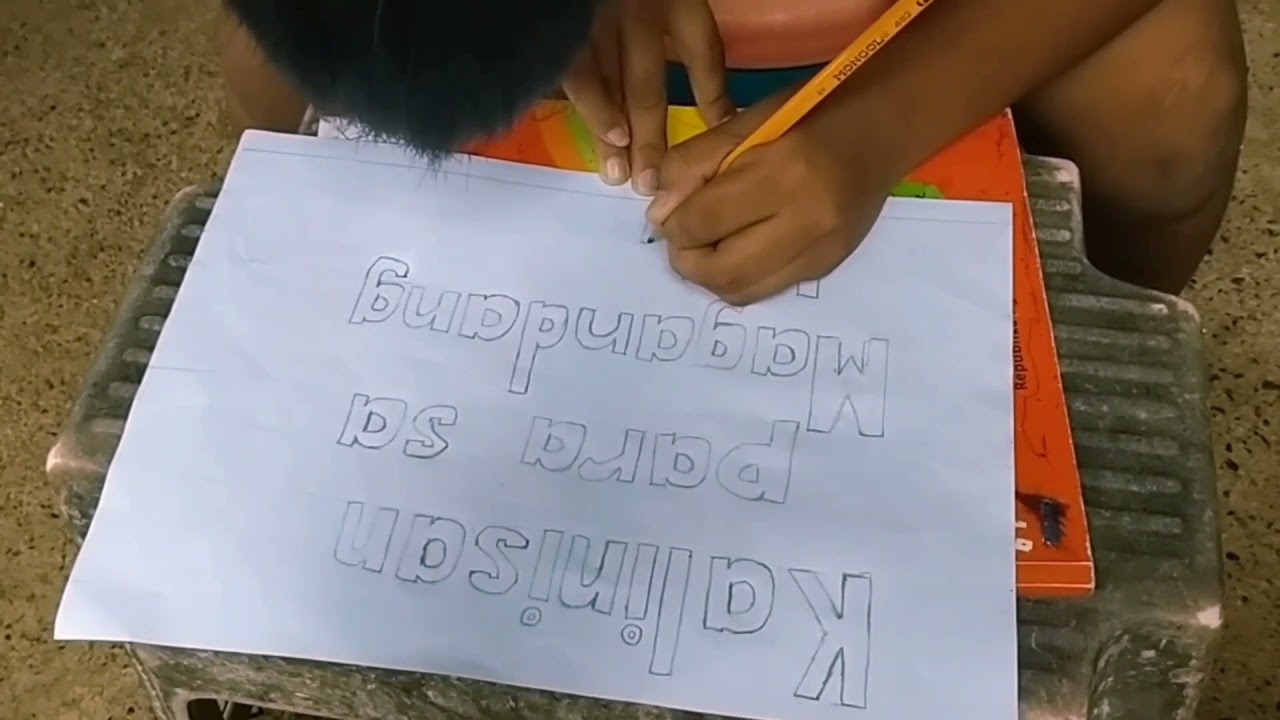 Kalinisan
para sa
Magandang
MONGOL 482